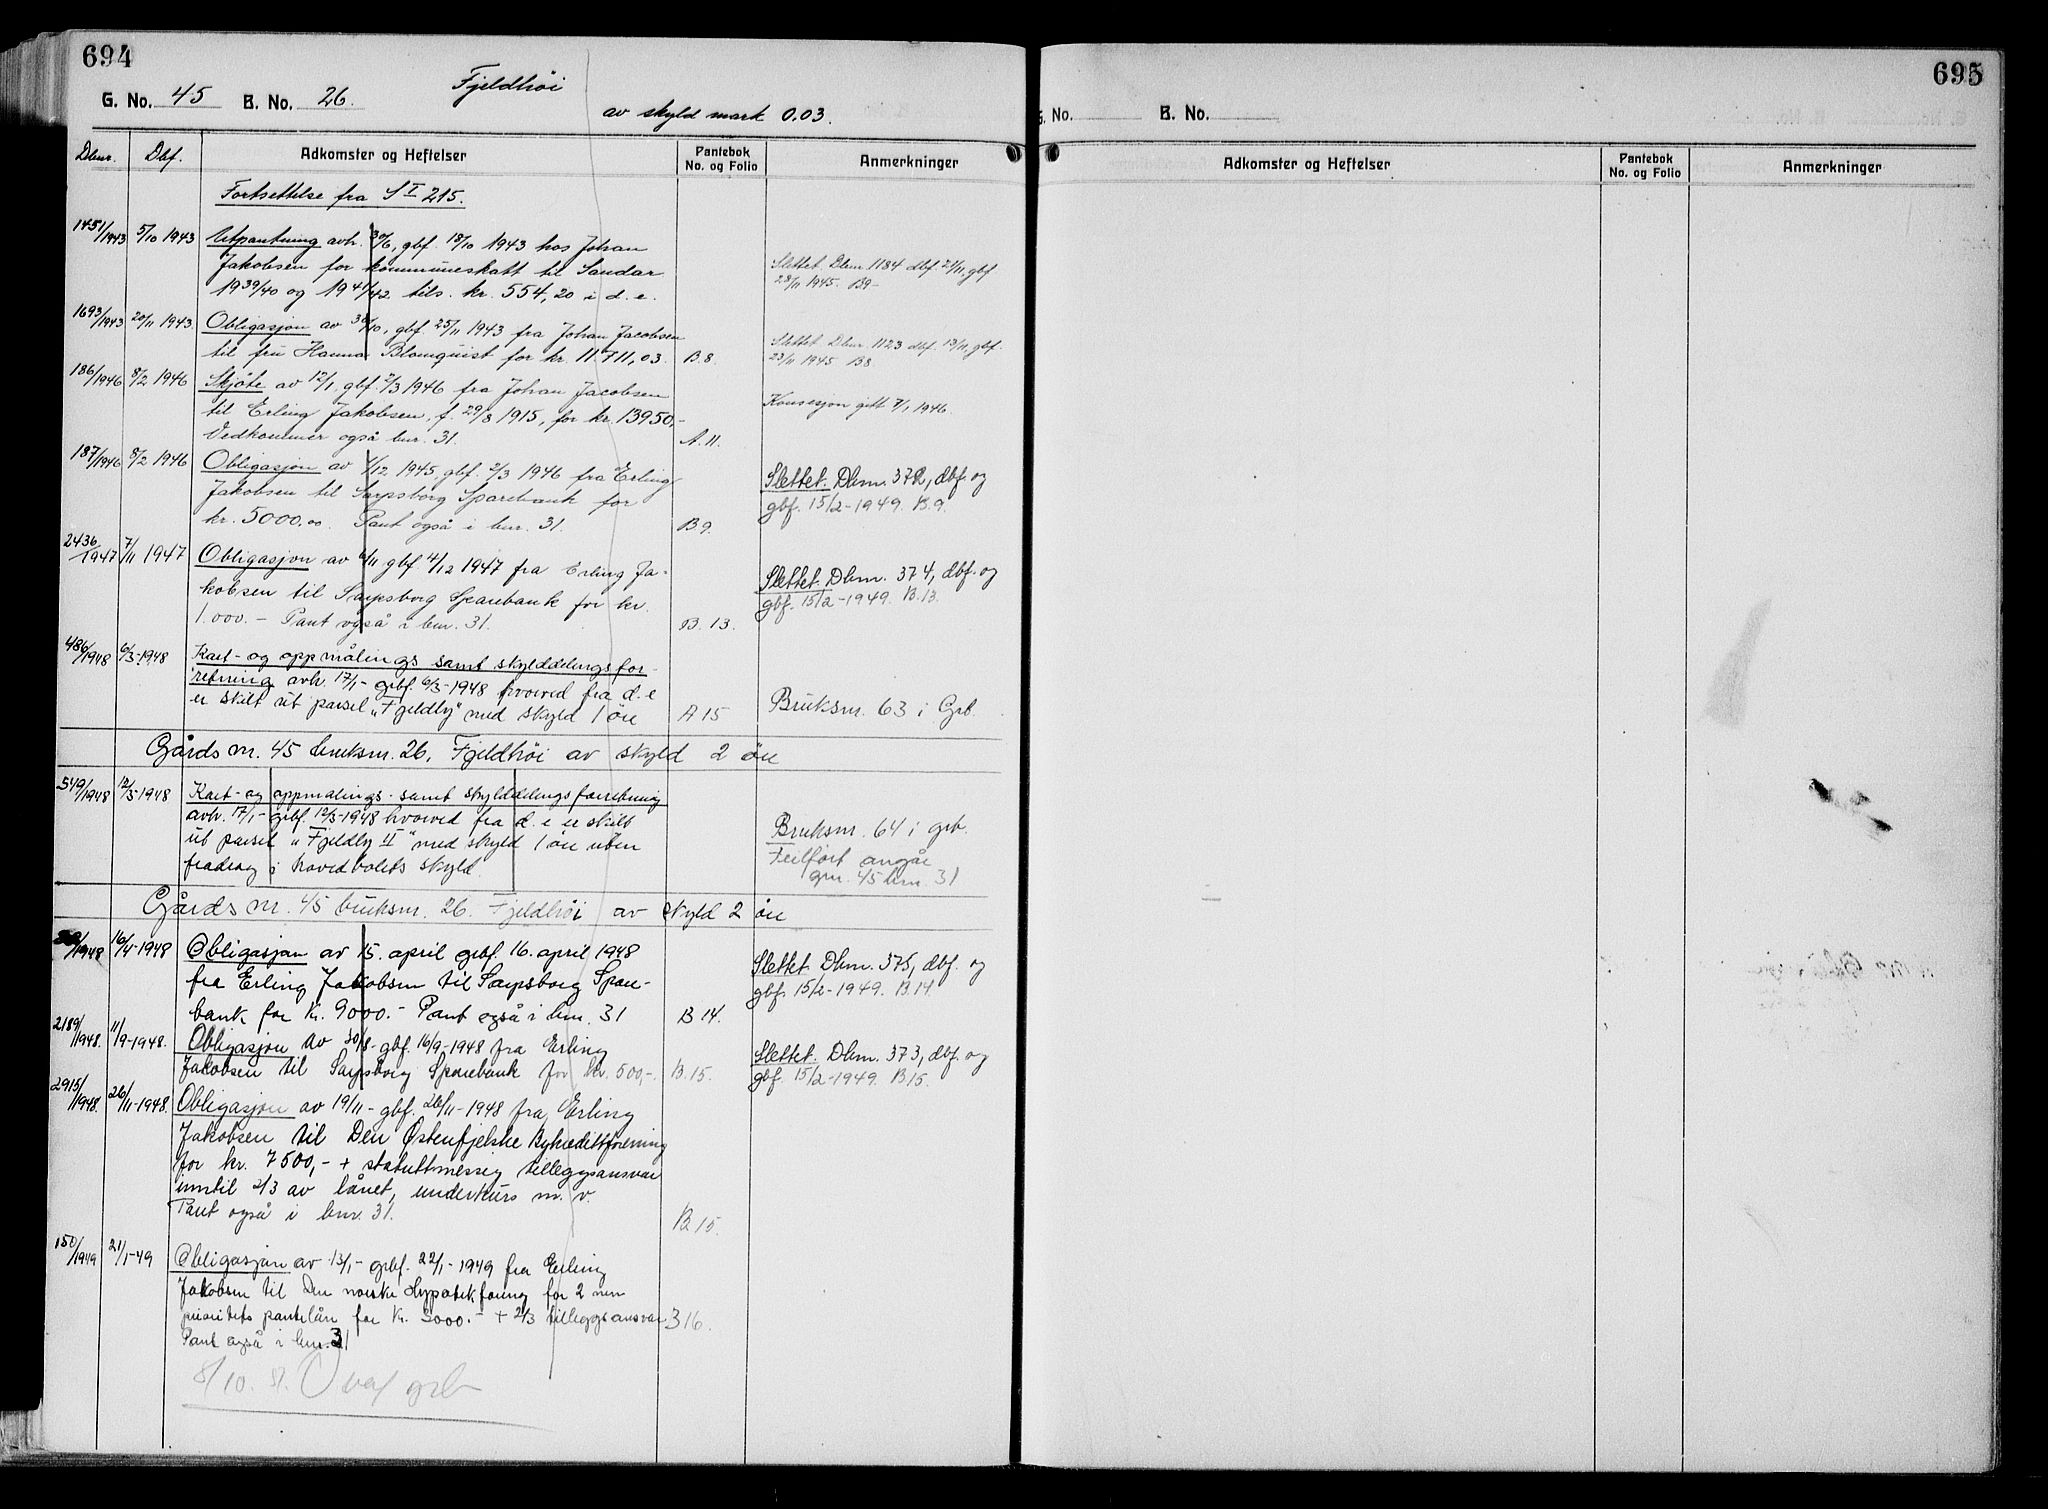 694
G. No. 45 B. No. 26. Fjeldhöi
av skyld mark 0.03.
Dbnr. Dbf. Adkomster og Heftelser Pantebok No. og Folio Anmerkninger
Fortsettelse fra S I 215.
1451/1943 5/10 1943 Utpantning avh. 30/6, gbf. 18/10 1943 hos Johan
Jakobsen for kommuneskatt til Sandar
1939/40 og 1941/42 tils. kr. 554,20 i d. e.
Slettet Dbnr. 1184 dbf. 24/11, gbf.
28/11 1945. B9-
1693/1943 20/11 1943. Obligasjon av 30/10, gbf. 25/11 1943 fra Johan Jacobsen
til fru Hanna Blomquist for kr 11.711,03. B.8.
Slettet Dbnr. 1123 dbf. 13/11, gbf.
23/11 1945 B8
186/1946 8/2 1946 Skjöte av 12/1, gbf. 2/3 1946 fra Johan Jacobsen
til Erling Jakobsen, f. 29/8 1915, for kr. 13950,-
Vedkommer også bnr. 31. A. 11.
Konsesjon gitt 7/1 1946.
187/1946 8/2 1946 Obligasjon av 1/12 1945, gbf. 2/3 1946 fra Erling
Jakobsen til Sarpsborg Sparebank for
kr. 5000.00. Pant også i bnr. 31. B9.
Slettet. Dbnr. 372, dbf. og
gbf. 15/2-1949. B.9.
2436/1947 7/11 1947 Obligasjon av 6/11 gbf 4/12 1947 fra Erling Ja-
kobsen til Sarpsborg Sparebank for kr.
1.000.- Pant også i bnr. 31. B. 13.
Slettet. Dbnr. 374, dbf. og
gbf. 15/2-1949. B.13.
486/1948 6/3-1948 Kart- og oppmålings samt skylddelingsfor-
retning avh. 17/1- grbf. 6/3-1948 hvorved fra d. e
er skilt ut parsel „Fjeldly" med skyld 1 öre A 15
Bruksnr. 63 i Grb.
Gårds nr. 45 bruksnr. 26. Fjeldhöi av skyld 2 öre
549/1948 12/3-1948 Kart- og oppmålings- samt skylddelingsforretning
avh. 17/1- grbf. 12/3-1948 hvorved fra d. e er skilt
ut parsel „Fjeldly II" med skyld 1 öre uten
fradrag i hovedbölets skyld.
Bruksnr. 64 i grb.
Feilfört angår
gnr. 45 bnr. 31
Gårds nr. 45 bruksnr. 26. Fjeldhöi av skyld 2 öre
/1948 16/4-1948 Obligasjon av 15. april grbf. 16. april 1948
fra Erling Jakobsen til Sarpsborg Spare-
bank for Kr. 9000.- Pant også i bnr. 31 B 14.
Slettet. Dbnr. 375, dbf. og
gbf. 15/2-1949. B.14.
2189/1948. 11/9-1948. Obligasjon av 30/8- gbf. 16/9-1948 fra Erling
Jakobsen til Sarpsborg Sparebank for kr. 500,-. B.15.
Slettet. Dbnr. 373, dbf. og
gbf. 15/2-1949. B15.
2915/1948. 26/11-1948. Obligasjon av 19/11- gbf. 26/11-1948 fra Erling
Jakobsen til Den Østenfjelske Bykreditforening
for kr. 7500,- + statuttmessig tilleggsansvar
inntil 2/3 av lånet, underkurs m. v.
Pant også i bnr. 31. B 15.
150/1949 21/1-49 Obligasjon av 13/1- grbf. 22/1-1949 fra Erling
Jakobsen til Den norske Hypotekforening for 2 nen
prioritets pantelån for Kr. 3000.- + 2/3 tilleggsansvar B16.
Pant også i bnr. 31
8/10. 51. grb
695
G. No. B. No.
Adkomster og Heftelser Pantebok No. og Folio Anmerkninger